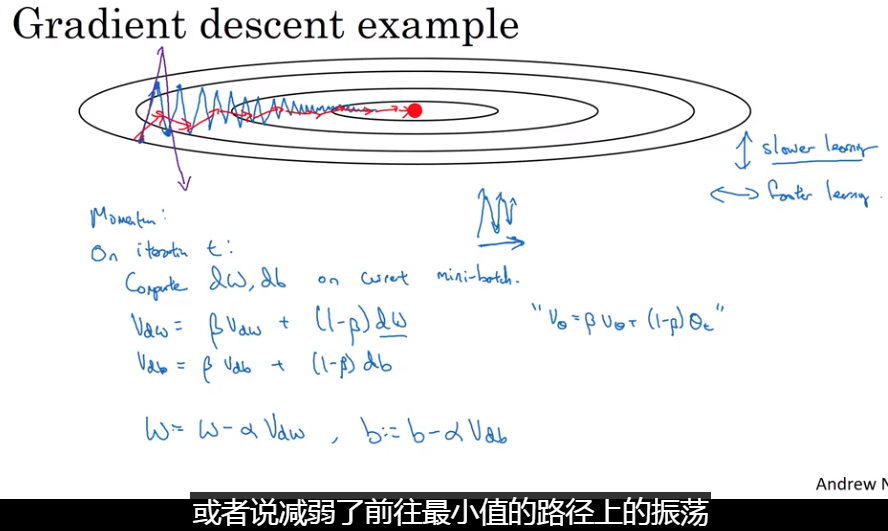 Gradient descent example
slower learning
faster learning
Momentum:
On iteration t:
Compute dw, db on current mini-batch.
Vdw = βVdw + (1-β)dw
"Vθ = βVθ + (1-β)θt"
Vdb = βVdb + (1-β)db
w:= w-αVdw, b:= b-αVdb
Andrew N
或者说减弱了前往最小值的路径上的振荡